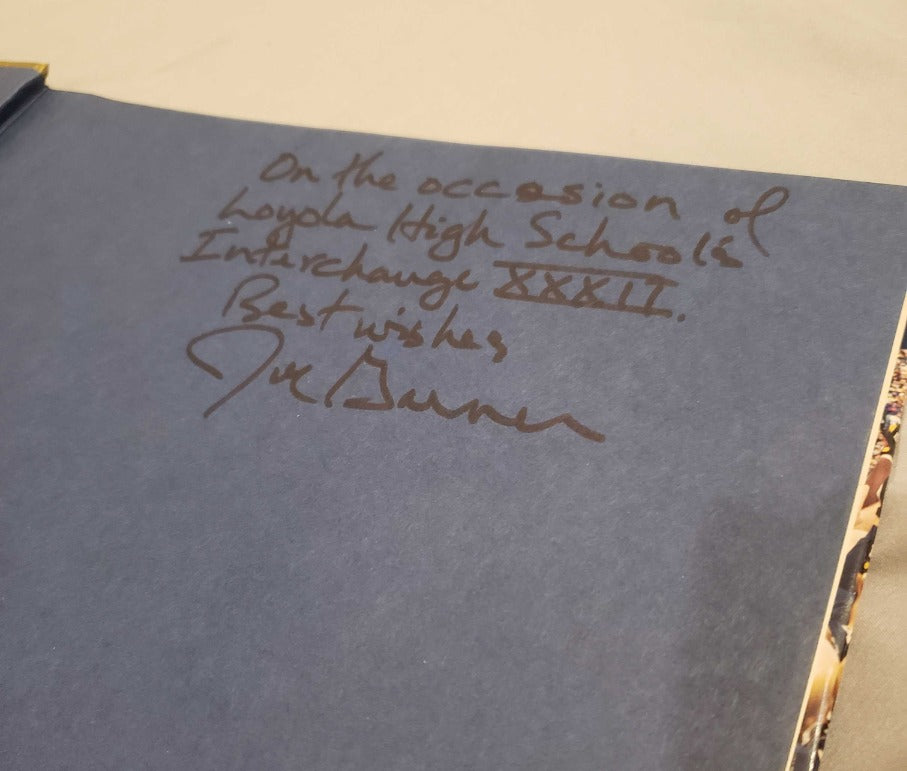 On the occasion of
Loyola High School's
Interchange XXXII.
Best wishes
Joe Garner